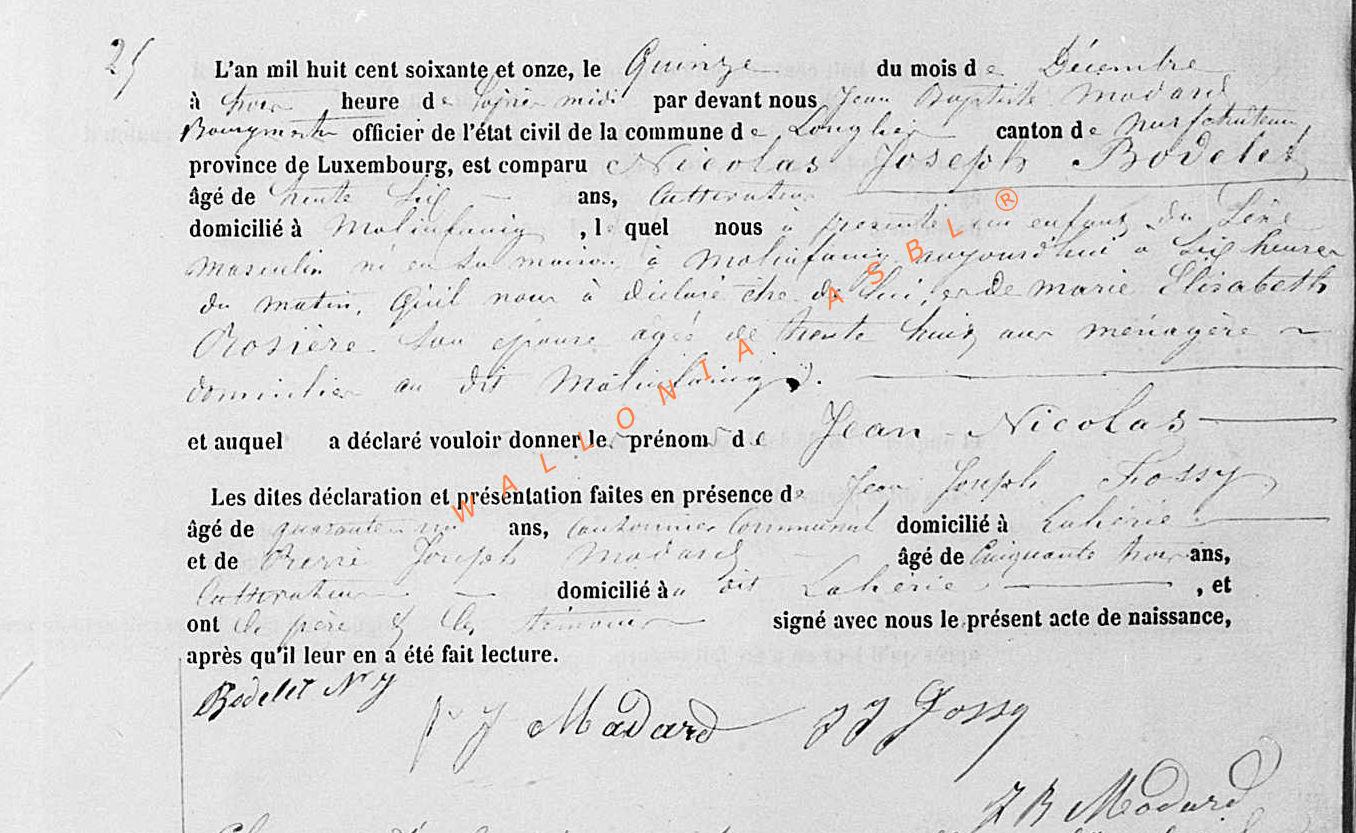 25
L'an mil huit cent soixante et onze, le Quinze du mois de Décembre
à trois heure de l'après midi par devant nous Jean Baptiste Modard
Bourgmestre officier de l'état civil de la commune de Longlier canton de Neufchateau
province de Luxembourg, est comparu Nicolas Joseph Bodelet
âgé de trente six ans, Cultivateur
domicilié à Molinfaing, le quel nous à présenté un enfant du Sexe
masculin né en sa maison à Molinfaing aujourd'hui a Six heures
du matin, Qu'il nous à déclaré être de lui, et De marie Elisabeth
Rosière Son épouse agée de trente huit ans ménagère
domiciliée au dit Molinfaing.
et auquel a déclaré vouloir donner les prénoms de Jean Nicolas
Les dites déclaration et présentation faites en présence de Jean Joseph Fossy
âgé de quarante ans, cantonnier Communal domicilié à Lahérie
et de Pierre Joseph Modard âgé de Cinquante trois ans,
Cultivateur domicilié à au dit Lahérie, et
ont le père et les témoins signé avec nous le présent acte de naissance,
après qu'il leur en a été fait lecture.
Bodelet N J
P J Modard J J Fossy
J B Modard
WALLONIA ASBL ®